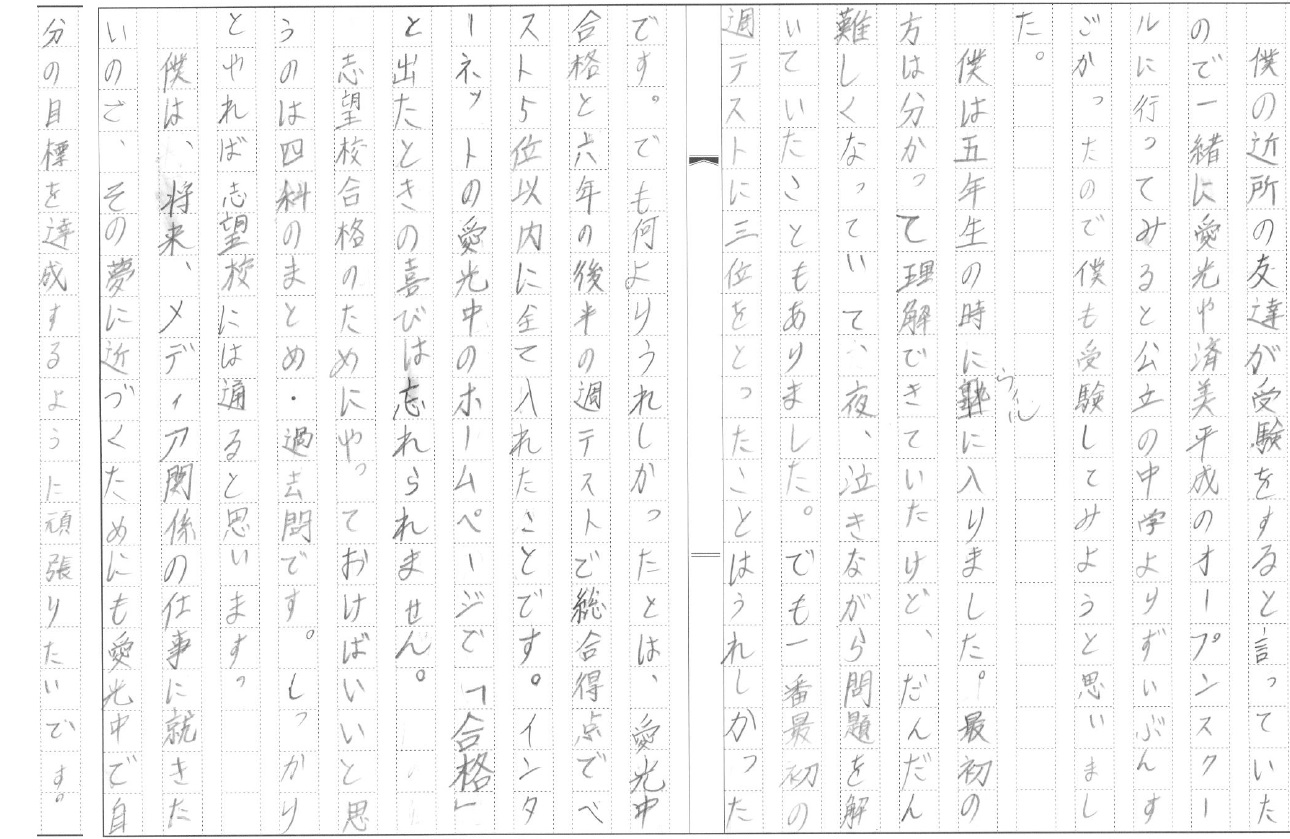 僕の近所の友達が受験をすると言っていた
ので一緒に愛光や済美平成のオープンスクー
ルに行ってみると公立の中学よりずいぶんす
ごかったので僕も受験してみようと思いまし
た。
僕は五年生の時に塾に入りました。最初の
方は分かって理解できていたけど、だんだん
難しくなっていて、夜、泣きながら問題を解
いていたこともありました。でも一番最初の
週テストに三位をとったことはうれしかった
です。でも何よりうれしかったとは、愛光中
合格と六年の後半の週テストで総合得点でベ
スト5位以内に全て入れたことです。インタ
ーネットの愛光中のホームページで「合格」
と出たときの喜びは忘れられません。
志望校合格のためにやっておけばいいと思
うのは四科のまとめ・過去問です。しっかり
とやれば志望校には通ると思います。
僕は、将来、メディア関係の仕事に就きた
いのさ、その夢に近づくためにも愛光中で自
分の目標を達成するように頑張りたいです。